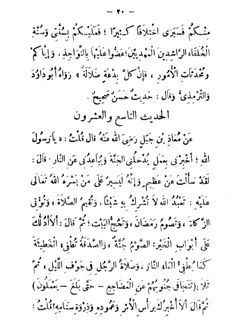 - ٢٠ -
مِنْكُمْ فَسَيَرَى اخْتِلَافًا كَثِيرًا ؛ فَعَلَيْكُمْ بِسُنَّتِي وَسُنَّةِ
الْخُلَفَاءِ الرَّاشِدِينَ الْمَهْدِيِّينَ؛ عَضُّوا عَلَيْهَا بِالنَّوَاجِذِ، وَإِيَّاكُمْ
وَمُحْدَثَاتِ الْأُمُورِ، فَإِنَّ كُلَّ بِدْعَةٍ ضَلَالَةٌ » رَوَاهُ أَبُو دَاوُدَ
وَالتِّرْمِذِيُّ وَقَالَ : حَدِيثٌ حَسَنٌ صَحِيحٌ.
الحديث التاسع والعشرون
عَنْ مُعَاذِ بْنِ جَبَلٍ رَضِيَ اللهُ عَنْهُ قَالَ قُلْتُ : « يَا رَسُولَ
اللهِ ! أَخْبِرْنِي بِعَمَلٍ يُدْخِلُنِي الْجَنَّةَ وَيُبَاعِدُنِي عَنِ النَّارِ، قَالَ :
لَقَدْ سَأَلْتَ عَنْ عَظِيمٍ، وَإِنَّهُ لَيَسِيرٌ عَلَى مَنْ يَسَّرَهُ اللهُ تَعَالَى
عَلَيْهِ : تَعْبُدُ اللهَ لَا تُشْرِكُ بِهِ شَيْئًا، وَتُقِيمُ الصَّلَاةَ، وَتُؤْتِي
الزَّكَاةَ، وَتَصُومُ رَمَضَانَ، وَتَحُجُّ الْبَيْتَ؛ ثُمَّ قَالَ : أَلَا أَدُلُّكَ
عَلَى أَبْوَابِ الْخَيْرِ : الصَّوْمُ جُنَّةٌ، وَالصَّدَقَةُ تُطْفِئُ الْخَطِيئَةَ
كَمَا يُطْفِئُ الْمَاءُ النَّارَ، وَصَلَاةُ الرَّجُلِ فِي جَوْفِ اللَّيْلِ، ثُمَّ
تَلَا: (تَتَجَافَى جُنُوبُهُمْ عَنِ الْمَضَاجِعِ - حَتَّى بَلَغَ - يَعْمَلُونَ)
ثُمَّ قَالَ أَلَا أُخْبِرُكَ بِرَأْسِ الْأَمْرِ وَعَمُودِهِ وَذِرْوَةِ سَنَامِهِ؟ قُلْتُ :